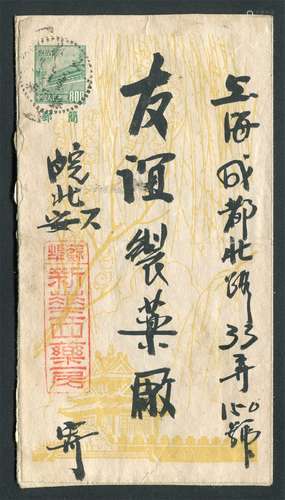 上海成都北路33弄150號
友誼製藥廠
皖北
新華西藥房
寄
800
郵簡